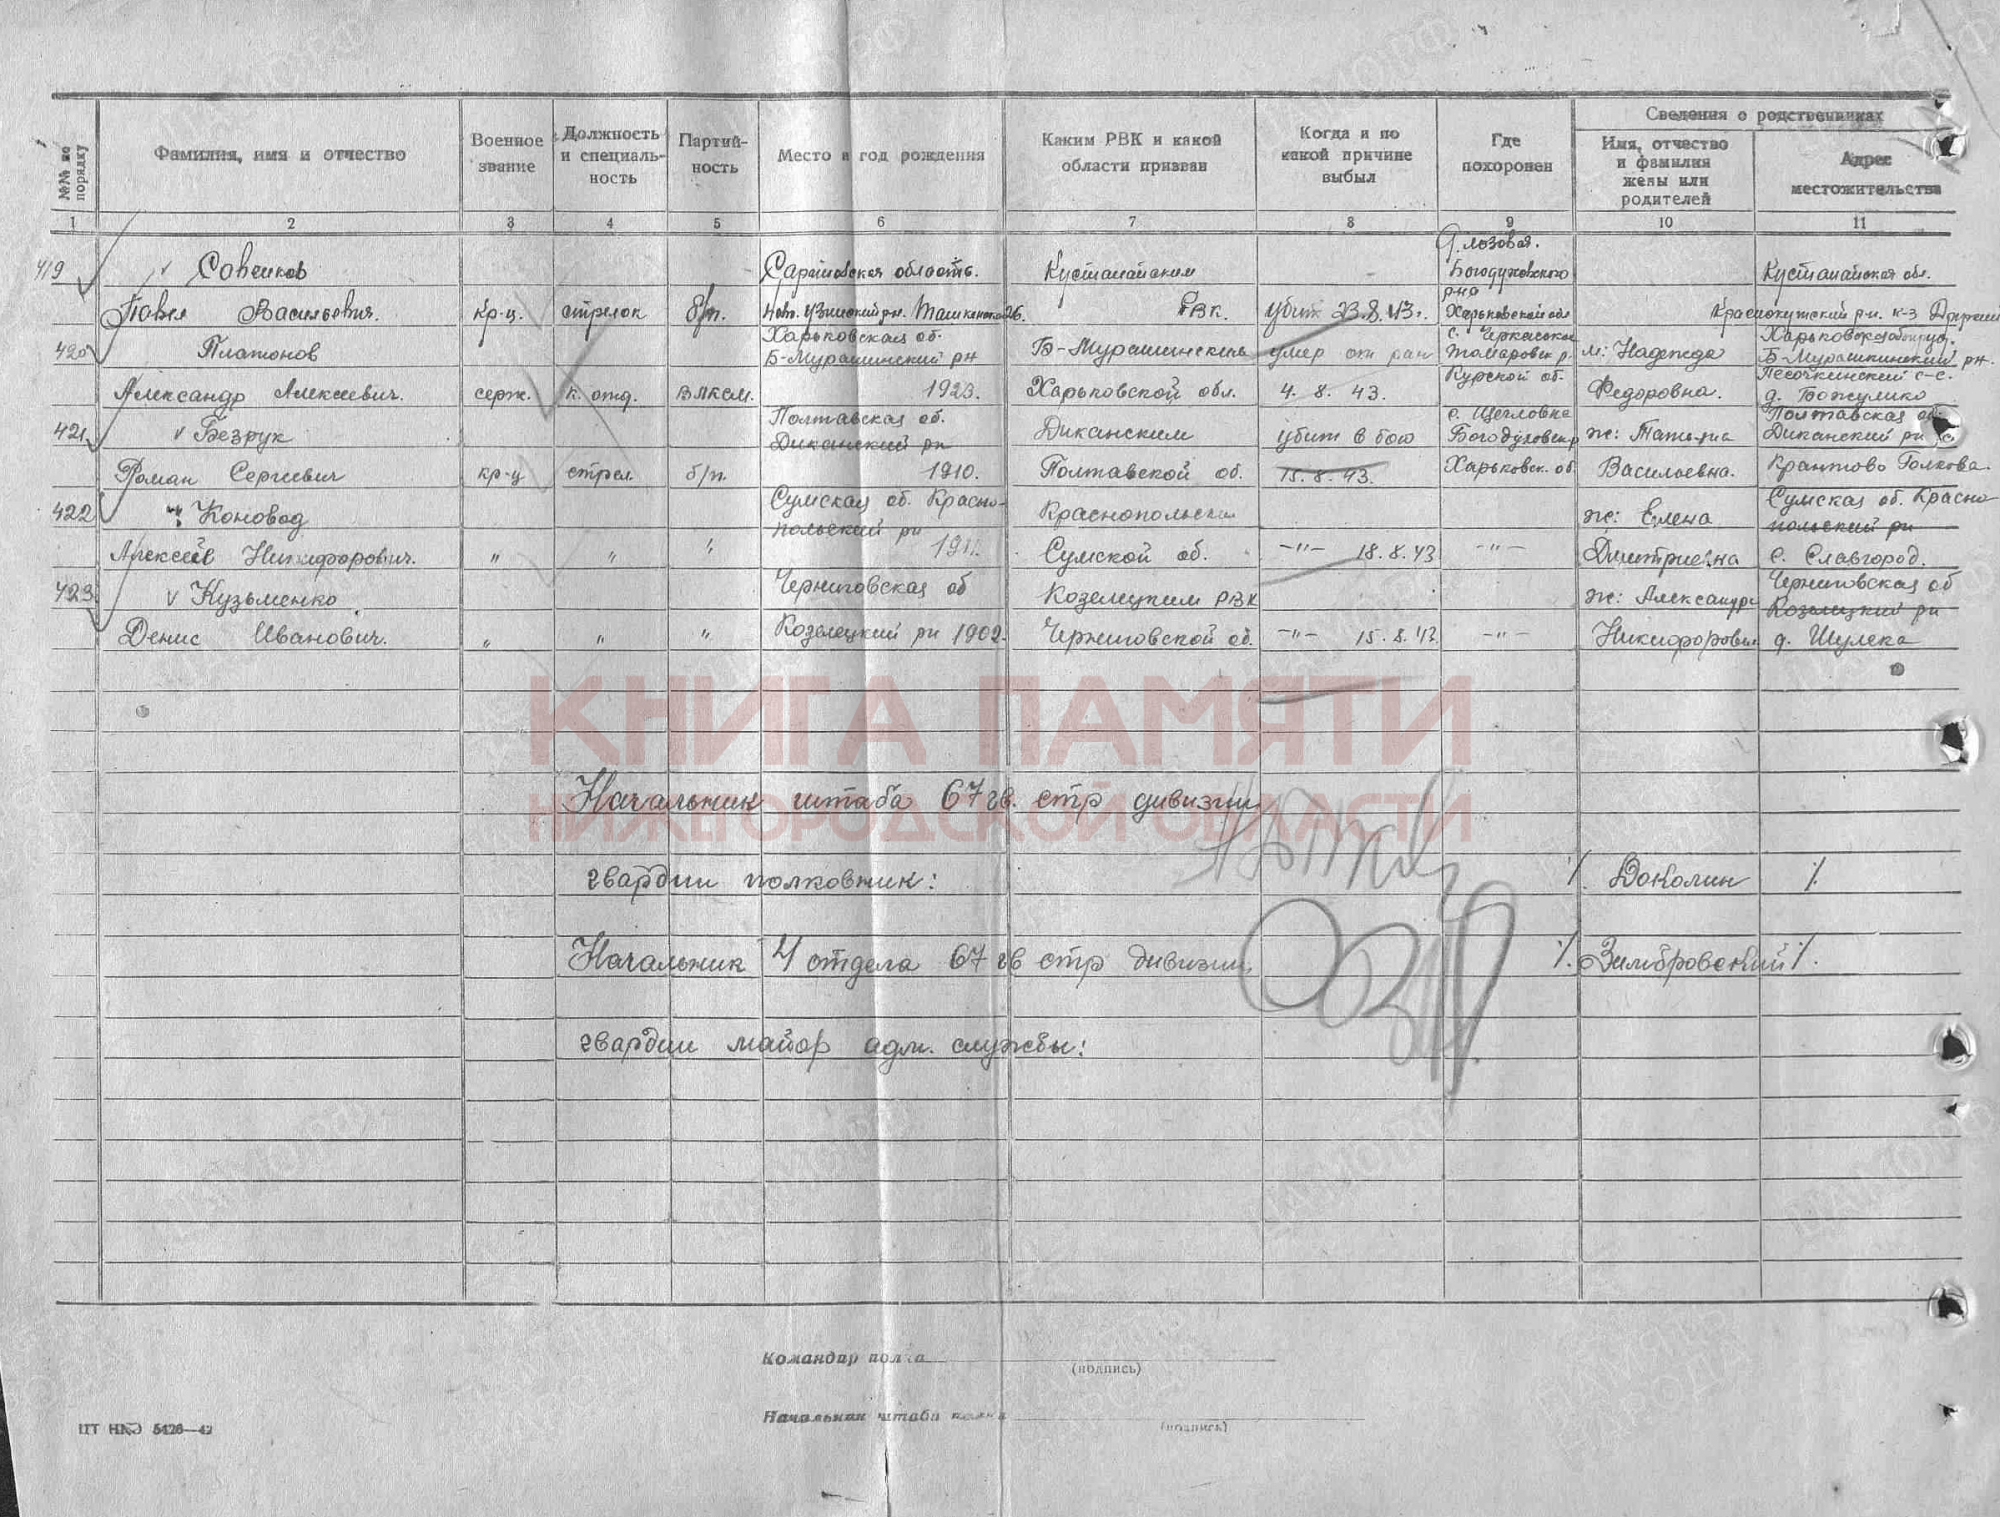 №№ по порядку
Фамилия, имя и отчество
Военное звание
Должность и специаль-ность
Партий-ность
Место и год рождения
Каким РВК и какой области призван
Когда и по какой причине выбыл
Где похоронен
Сведения о родственниках
Имя, отчество и фамилия жены или родителей
Адрес местожительства
1 2 3 4 5 6 7 8 9 10 11
д. Лозовая.
419 Саратовская область. Кустанайским Богодуховского Кустанайская обл.
р-на
Павел Васильевич. кр-ц. стрелок б/п. РВК. убит 23.8.43г. Харьковской обл Краснокутский р-н. к-з
Харьковская об. с. Черкасское
420 Платонов Б-Мурашкинский рн Б-Мурашкинским умер от ран Томаровск р. м: Надежда Б-Мурашкинский рн.
Курской об. Песочкинский с-с.
Александр Алексеевич. серж. к. отд. ВЛКСМ. 1923. Харьковской обл. 4. 8. 43. Федоровна. д. Божулино
Полтавская об. с. Щегловка Полтавская об.
421 Безрук Диканский рн Диканским убит в бою Богодуховск р ж: Татьяна Диканский рн
Роман Сергеевич кр-ц стрел. б/п. 1910. Полтавской об. 15. 8. 43. Харьковск. об. Васильевна.
Сумская об. Красно- Сумская об. Красно
422 Коновод польский рн Краснопольским ж: Елена польский рн
Алексей Никифорович. " " " Сумской об. -"- 18. 8. 43 -"- Дмитриевна с. Славгород.
Черниговская об Черниговская об
423 Кузьменко Козелецким РВК ж: Александра Козелецкий рн
Денис Иванович. " " " Козелецкий рн 1902. Черниговской об. -"- 15. 8. 43. -"- Никифоровн д. Шулека
КНИГА ПАМЯТИ
НИЖЕГОРОДСКОЙ ОБЛАСТИ
Начальник штаба 67 гв. стр дивизии
гвардии полковник: Воколин
Начальник 4 отдела 67 гв стр дивизии Зимбровский
гвардии майор адм. службы:
Командир полка
(подпись)
Начальник штаба полка
(подпись)
ПТ НКО 5426—42